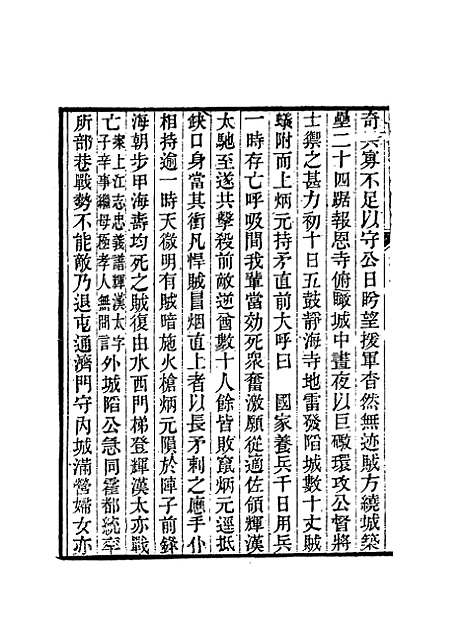 奇兵寡不足以守公日盼望援軍杳然無迹賊方繞城築
壘二十四踞報恩寺俯瞰城中晝夜以巨礮環攻公督將
士禦之甚力初十日五鼓靜海寺地雷發陷城數十丈賊
蟻附而上炳元持矛直前大呼曰　國家養兵千日用兵
一時存亡呼吸間我輩當効死衆奮激願從適佐領輝漢
太馳至遂共擊殺前敵逆酋數十人餘皆敗竄炳元逕抵
缺口身當其衝凡悍賊冒烟直上者以長矛刺之應手仆
相持逾一時天微明有賊暗施火槍炳元隕於陣子前鋒
海朝步甲海壽均死之賊復由水西門梯登輝漢太亦戰
亡案上江志忠義譜輝漢太字子辛事繼母極孝人無間言外城陷公急同霍都統率
所部巷戰勢不能敵乃退屯通濟門守內城滿營婦女亦